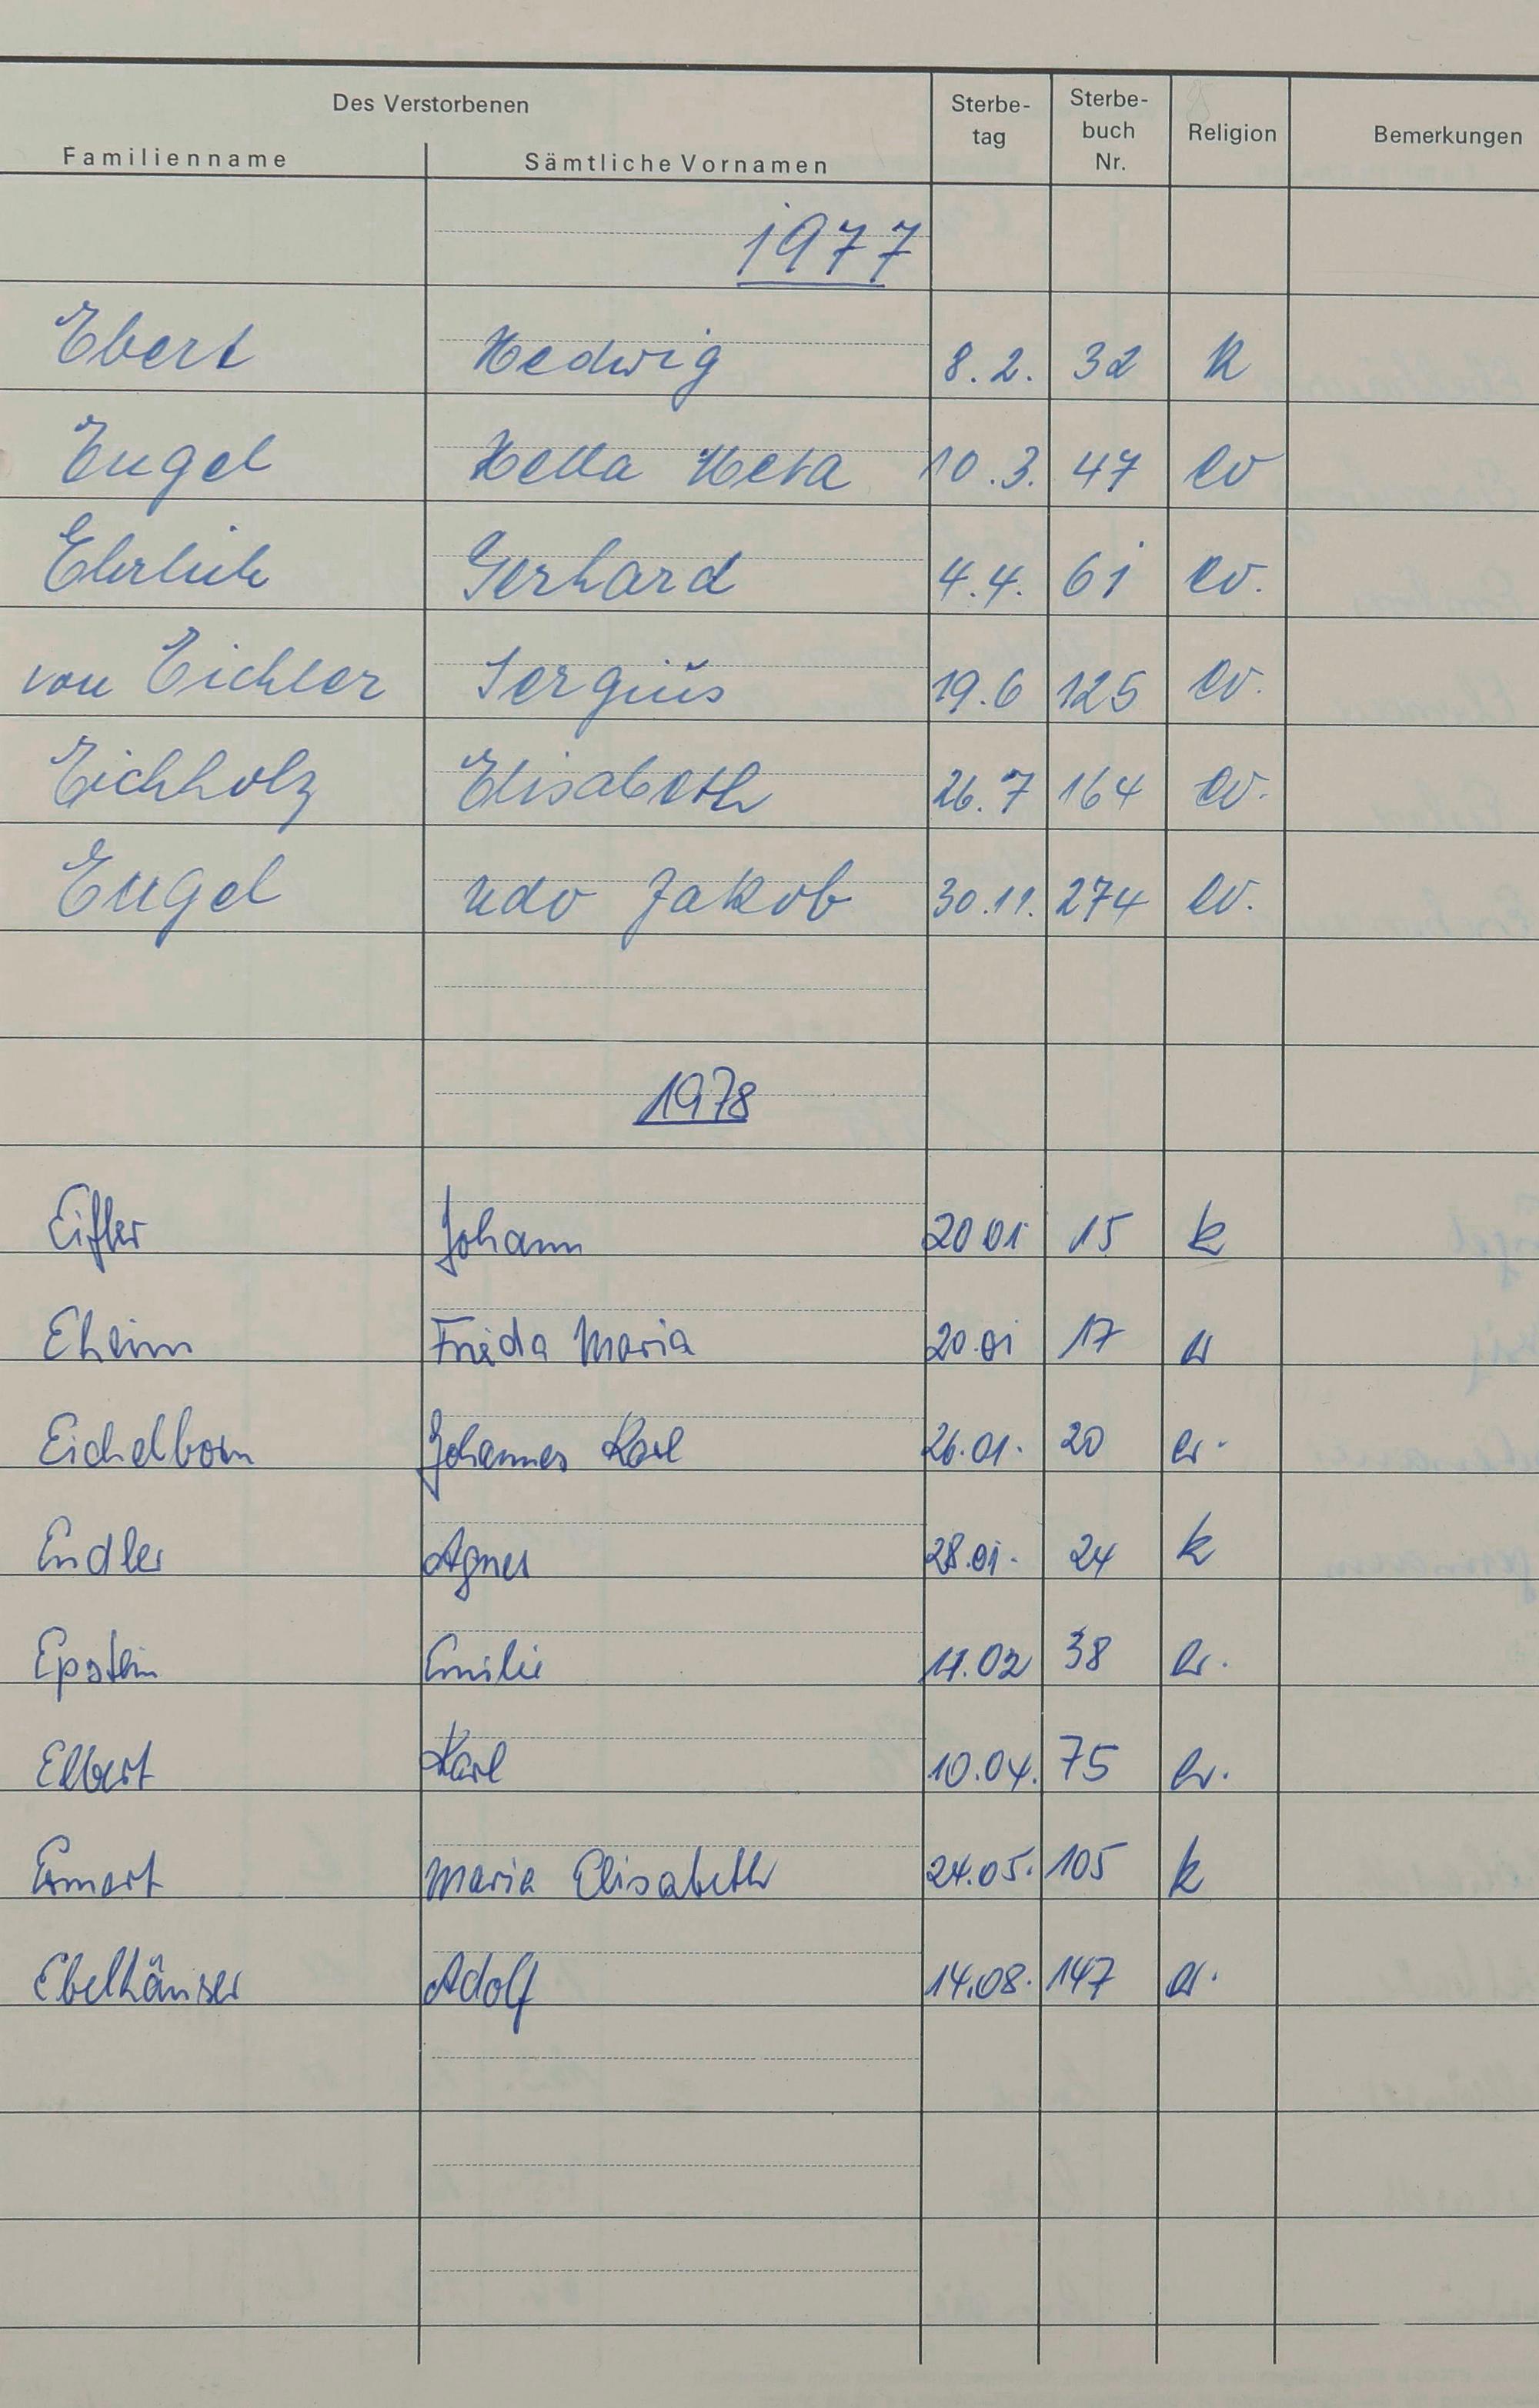 Des Verstorbenen
Familienname Sämtliche Vornamen Sterbe-tag Sterbe-buch Nr. Religion Bemerkungen
1977
Ebert Hedwig 8.2. 32 k
Engel Hella Meta 10.3. 47 ev
Ehrlich Gerhard 4.4. 61 ev.
von Eichler Sergius 19.6 125 ev.
Eichholz Elisabeth 26.7 164 ev.
Engel Udo Jakob 30.11. 274 ev.
1978
Eifler Johann 20 01 15 k
Eheim Frieda Maria 20.01 17 ev
Eichelborn Johannes Karl 26.01. 20 ev.
Endler Agnes 28.01. 24 k
Epstein Emilie 11.02 38 ev.
Elbert Karl 10.04. 75 ev.
Ermert Maria Elisabeth 24.05. 105 k
Ebelhäuser Adolf 14.08. 147 ev.